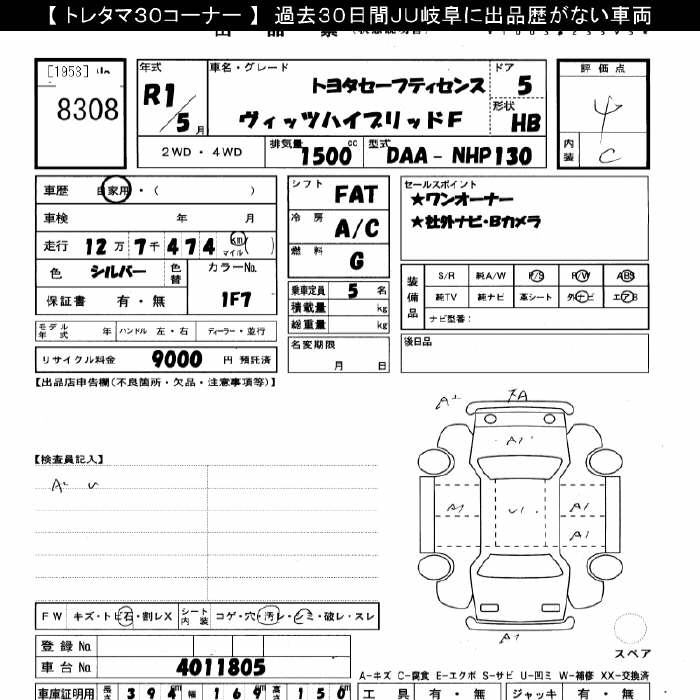 【 トレタマ30コーナー 】 過去30日間JU岐阜に出品歴がない車両
[1953]
8308
年式
R1/5月
車名・グレード
トヨタセーフティセンス
ヴィッツハイブリッドF
ドア
5
形状
HB
評価点
4
内装
C
2WD ・ 4WD
排気量 1500 cc
型式 DAA - NHP130
車歴 自家用 ・ ( )
車検 年 月
走行 12万7千474 km マイル ( )
色 シルバー 色替
カラーNo. 1F7
保証書 有 ・ 無
モデル年式 年 ハンドル 左・右 ディーラー・並行
リサイクル料金 9000 円 預託済
シフト FAT
冷房 A/C
燃料 G
乗車定員 5 名
積載量 kg
総重量 kg
名変期限
月 日
セールスポイント
★ワンオーナー
★社外ナビ・Bカメラ
装備品
S/R 純A/W P/S P/W ABS
純TV 純ナビ 革シート 外ナビ エアB
ナビ型番:
後日品
【出品店申告欄(不良箇所・欠品・注意事項等)】
【検査員記入】
A2 U
A2
A1
A1
A1
U1
A1
A1
スペア
FW キズ・トビ石・割レX
シート内装 コゲ・穴・汚レ・シミ・破レ・スレ
登録No.
車台No. 4011805
A-キズ C-腐食 E-エクボ S-サビ U-凹ミ W-補修 XX-交換済
車庫証明用 長さ 394 幅 169 高さ 150
工具 有・無 ジャッキ 有・無